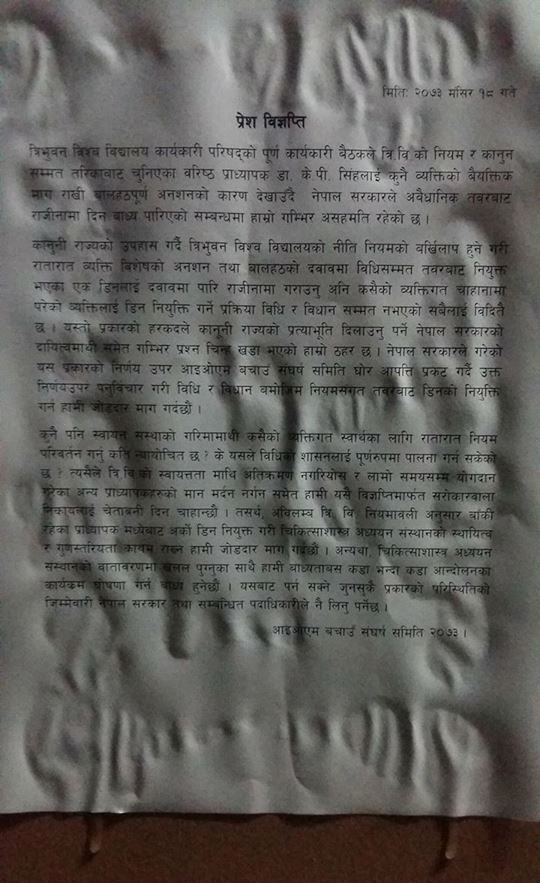 मितिः २०७३ मंसिर १८ गते
प्रेश विज्ञप्ति
त्रिभुवन विश्व विद्यालय कार्यकारी परिषद्को पुर्ण कार्यकारी बैठकले त्रि.वि.को नियम र कानुन
सम्मत तरिकाबाट चुनिएका वरिष्ठ प्राध्यापक डा. के.पी. सिंहलाई कुनै व्यक्तिको बैयक्तिक
माग राखी बालहठपूर्ण अनशनको कारण देखाउँदै नेपाल सरकारले अवैधानिक तवरबाट
राजीनामा दिन बाध्य पारिएको सम्बन्धमा हाम्रो गम्भिर असहमति रहेको छ ।
कानुनी राज्यको उपहास गर्दै त्रिभुवन विश्व विद्यालयको नीति नियमको बर्खिलाप हुने गरी
रातारात व्यक्ति विशेषको अनशन तथा बालहठको दवावमा विधिसम्मत तवरबाट नियुक्त
भएका एक डिनलाई दवावमा पारि राजीनामा गराउनु अनि कसैको व्यक्तिगत चाहानामा
परेको व्यक्तिलाई डिन नियुक्ति गर्ने प्रक्रिया विधि र विधान सम्मत नभएको सबैलाई विदितै
छ । यस्तो प्रकारको हरकदले कानूनी राज्यको प्रत्याभूति दिलाउनु पर्ने नेपाल सरकारको
दायित्वमाथी समेत गम्भिर प्रश्न चिन्ह खडा भएको हाम्रो ठहर छ । नेपाल सरकारले गरेको
यस प्रकारको निर्णय उपर आइओएम बचाउँ संघर्ष समिति घोर आपत्ति प्रकट गर्दै उक्त
निर्णयउपर पुनर्विचार गरी विधि र विधान बमोजिम नियमसंगत तवरबाट डिनको नियुक्ति
गर्न हामी जोडदार माग गर्दछौं ।
कुनै पनि स्वायत्त संस्थाको गरिमामाथी कसैको व्यक्तिगत स्वार्थका लागि रातारात नियम
परिवर्तन गर्नु कति न्यायोचित छ ? के यसले विधिको शासनलाई पूर्णरुपमा पालना गर्न सकेको
छ ? त्यसैले त्रि.वि.को स्वायत्तता माथि अतिक्रमण नगरियोस् र लामो समयसम्म योगदान
गरेका अन्य प्राध्यापकहरुको मान मर्दन नगर्न समेत हामी यसै विज्ञप्तिमार्फत सरोकारवाला
निकायलाई चेताबनी दिन चाहान्छौं । तसर्थ, अविलम्ब त्रि. वि. नियमावली अनुसार बाँकी
रहेका प्राध्यापक मध्येबाट अर्को डिन नियुक्त गरी चिकित्साशास्त्र अध्ययन संस्थानको स्थायित्व
र गुणस्तरियता कायम राख्न हामी जोडदार माग गर्दछौं । अन्यथा, चिकित्साशास्त्र अध्ययन
संस्थानको वातावरणमा खलल पुग्नुका साथै हामी बाध्यताबस कडा भन्दा कडा आन्दोलनका
कार्यक्रम घोषणा गर्न बाध्य हुनेछौं । यसबाट पर्न सक्ने जुनसुकै प्रकारको परिस्थितिको
जिम्मेवारी नेपाल सरकार तथा सम्बन्धित पदाधिकारीले नै लिनु पर्नेछ ।
आइओएम बचाउँ संघर्ष समिति २०७३ ।